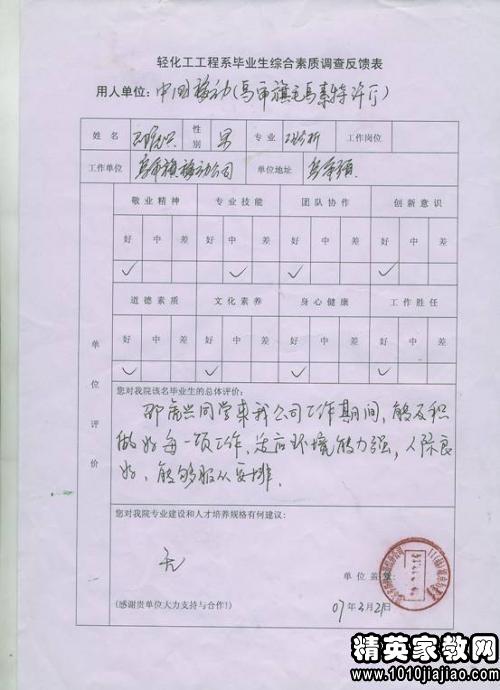 轻化工工程系毕业生综合素质调查反馈表
用人单位：中国移动(乌审旗毛乌素特许厅)
姓名 性别 男 专业 工作岗位
工作单位 乌审旗移动公司 单位地址 乌审旗
敬业精神 专业技能 团队协作 创新意识
好 中 差 好 中 差 好 中 差 好 中 差
✓ ✓ ✓ ✓
道德素质 文化素养 身心健康 工作胜任
好 中 差 好 中 差 好 中 差 好 中 差
✓ ✓ ✓ ✓
单位评价
您对我院该名毕业生的总体评价：
同学来我公司工作期间，能及积
做好每一项工作，适应环境能力强，人际良
好，能够服从安排。
您对我院专业建设和人才培养规格有何建议：
无
单位盖章：
07年3月21日
(感谢贵单位大力支持与合作！)
精英家教网
www.1010jiajiao.com